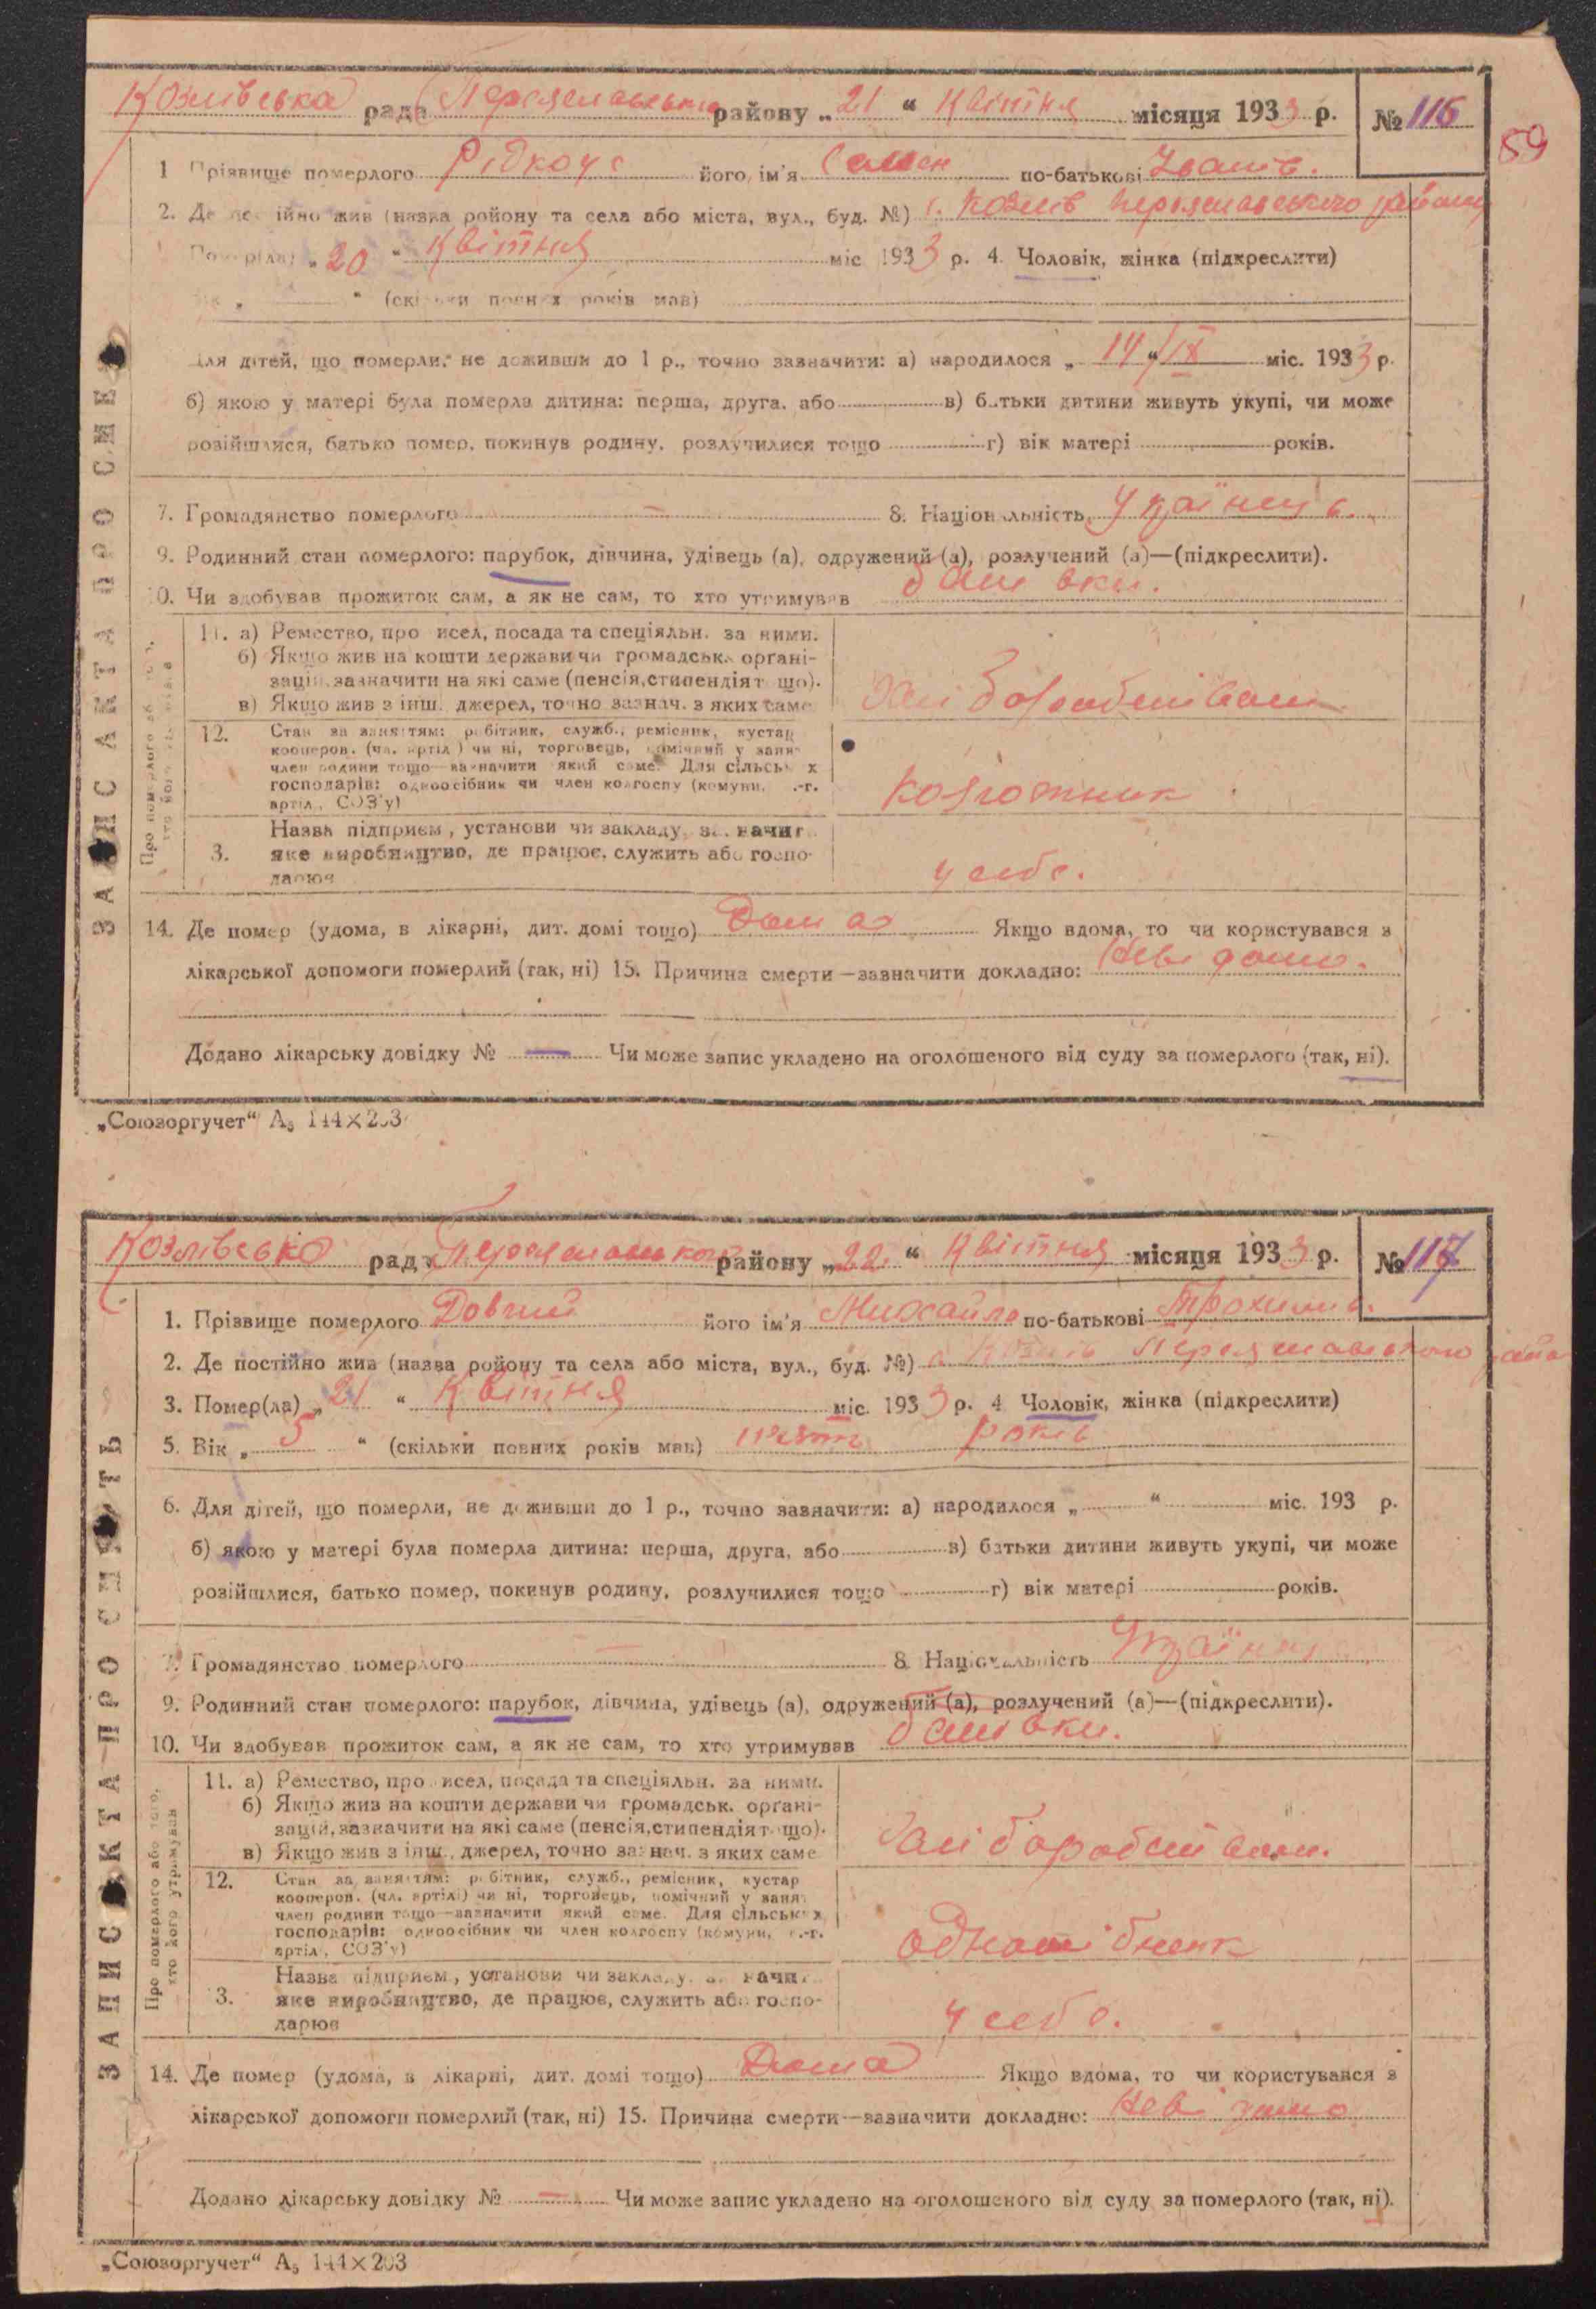 Козлівська рада Переяславського району „21“ Квітня місяця 1933 р. № 116
59
1 Прізвище померлого Рідкоус його ім'я Семен по-батькові Іванів.
2. Де постійно жив (назва району та села або міста, вул., буд. №) с. Козлів Переяславського району
Помер(ла) „20“ Квітня міс 1933 р. 4. Чоловік, жінка (підкреслити)
Вік „ “ (скільки повних років мав)
Для дітей, що померли, не доживши до 1 р., точно зазначити: а) народилося „14“ IX міс. 1933 р.
б) якою у матері була померла дитина: перша, друга, або в) батьки дитини живуть укупі, чи може
розійшлися, батько помер, покинув родину, розлучилися тощо г) вік матері років.
7. Громадянство померлого — 8. Національність Українець.
9. Родинний стан померлого: парубок, дівчина, удівець (а), одружений (а), розлучений (а)—(підкреслити).
10. Чи здобував прожиток сам, а як не сам, то хто утримував батьки.
11. а) Ремество, промисел, посада та спеціяльн. за ними.
б) Якщо жив на кошти держави чи громадськ. органі-
зацій, зазначити на які саме (пенсія, стипендія тощо).
в) Якщо жив з інш. джерел, точно зазнач. з яких саме
Хліборобством
12. Стан за заняттям: робітник, служб., ремісник, кустар
кооперов. (чл. артілі) чи ні, торговець, помічний у занят.
член родини тощо—зазначити який саме. Для сільських
господарів: одноосібник чи член колгоспу (комуни, с.-г.
артіл., СОЗ'у)
Колгоспник
Назва підприєм., установи чи закладу, зазначит.
3. яке виробництво, де працює, служить або госпо-
дарює
у себе.
14. Де помер (удома, в лікарні, дит. домі тощо) Дома Якщо вдома, то чи користувався з
лікарської допомоги померлий (так, ні) 15. Причина смерти—зазначити докладно: Невідомо.
Додано лікарську довідку № — Чи може запис укладено на оголошеного від суду за померлого (так, ні).
ЗАПИС АКТА ПРО СМЕРТЬ
Про померлого або того,
хто його утримував
„Союзоргучет“ А5 144×203
Козлівсько рада Переяславського району „22“ Квітня місяця 1933 р. № 117
1. Прізвище померлого Довгий його ім'я Михайло по-батькові Трохимів.
2. Де постійно жив (назва району та села або міста, вул., буд. №) с Козлів Переяславського райо
3. Помер(ла) „21“ Квітня міс. 1933 р. 4 Чоловік, жінка (підкреслити)
5. Вік „5“ (скільки повних років мав) пять років
6. Для дітей, що померли, не доживши до 1 р., точно зазначити: а) народилося „ “ міс. 193 р.
б) якою у матері була померла дитина: перша, друга, або в) батьки дитини живуть укупі, чи може
розійшлися, батько помер, покинув родину, розлучилися тощо г) вік матері років.
7. Громадянство померлого — 8. Національність Українец
9. Родинний стан померлого: парубок, дівчина, удівець (а), одружений (а), розлучений (а)—(підкреслити).
10. Чи здобував прожиток сам, а як не сам, то хто утримував батьки.
11. а) Ремество, промисел, посада та спеціяльн. за ними.
б) Якщо жив на кошти держави чи громадськ. органі-
зацій, зазначити на які саме (пенсія, стипендія тощо).
в) Якщо жив з інш., джерел, точно зазнач. з яких саме
Хліборобством.
12. Стан за заняттям: робітник, служб., ремісник, кустар
кооперов. (чл. артілі) чи ні, торговець, помічний у занят.
член родини тощо—зазначити який саме. Для сільських
господарів: одноосібник чи член колгоспу (комуни, с.-г.
артіл., СОЗ'у)
Назва підприєм., установи чи закладу, зазначит.
3. яке виробництво, де працює, служить або госпо-
дарює
у себе.
14. Де помер (удома, в лікарні, дит. домі тощо) Дома Якщо вдома, то чи користувався з
лікарської допомоги померлий (так, ні) 15. Причина смерти—зазначити докладно: Невідомо
Додано лікарську довідку № — Чи може запис укладено на оголошеного від суду за померлого (так, ні).
ЗАПИС АКТА ПРО СМЕРТЬ
Про померлого або того,
хто його утримував
„Союзоргучет“ А5 144×203